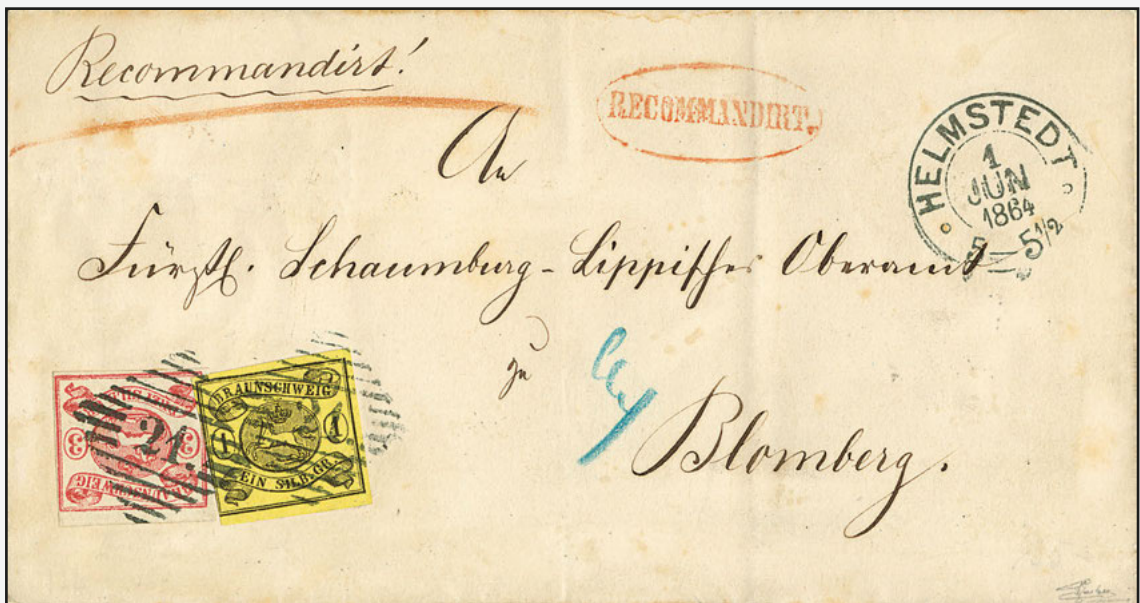 Recommandirt!
RECOMMANDIRT.
HELMSTEDT
1
JUN
1864
5½
An
Fürstl. Schaumburg-Lippisches Oberamt
zu
Blomberg.
BRAUNSCHWEIG
3 3
21.
BRAUNSCHWEIG
1 1
EIN SILB.GR.